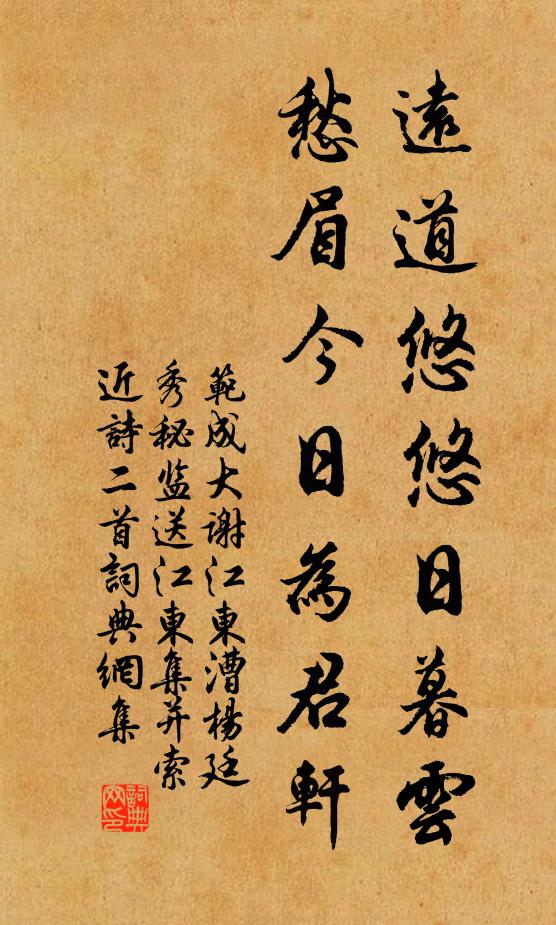 遠道悠悠日暮雲
愁眉今日為君軒
範成大謝江東漕楊廷
秀秘监送江東集并索
近詩二首詞典網集
詞典网印